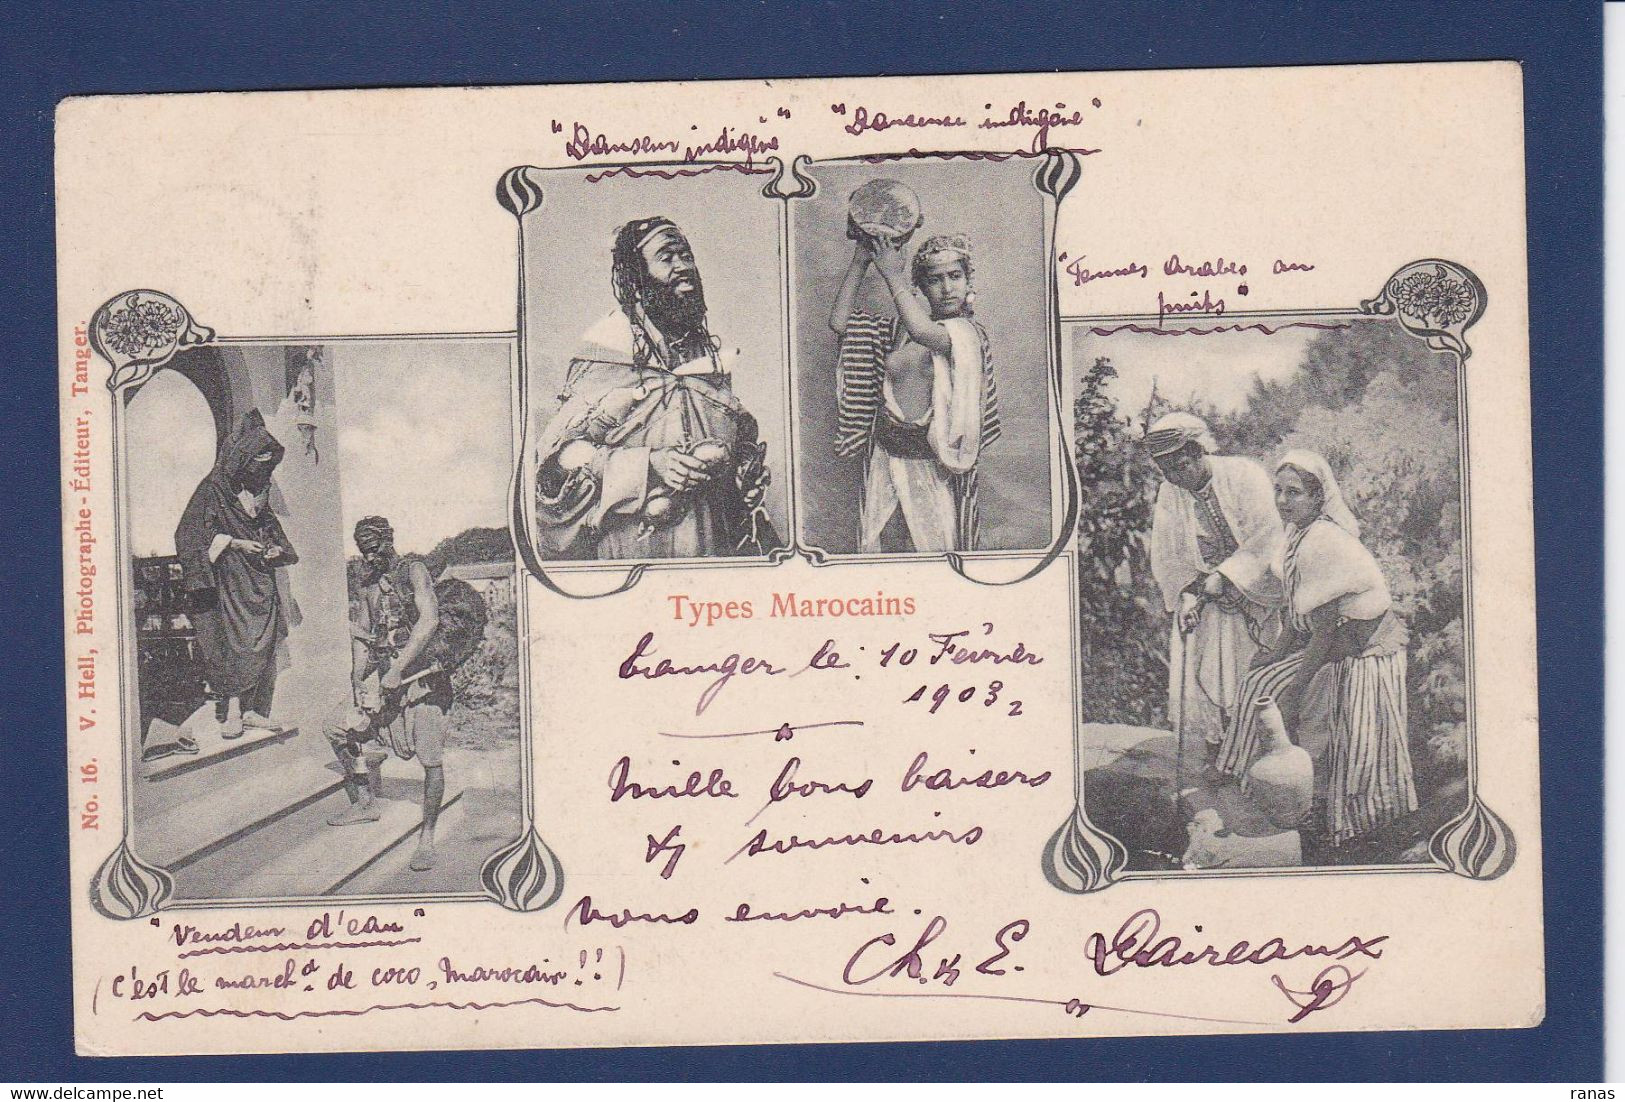 "Danseur indigène"
"Danseuse indigène"
"Femmes Arabes au
puits"
No. 16. V. Hell, Photographe-Éditeur, Tanger.
Types Marocains
Tanger le 10 Février
1903
Mille bons baisers
& souvenirs
vous envoie.
Ch & E. Daireaux
"Vendeur d'eau"
(c'est le marchd de coco, Marocain!!)
ranas